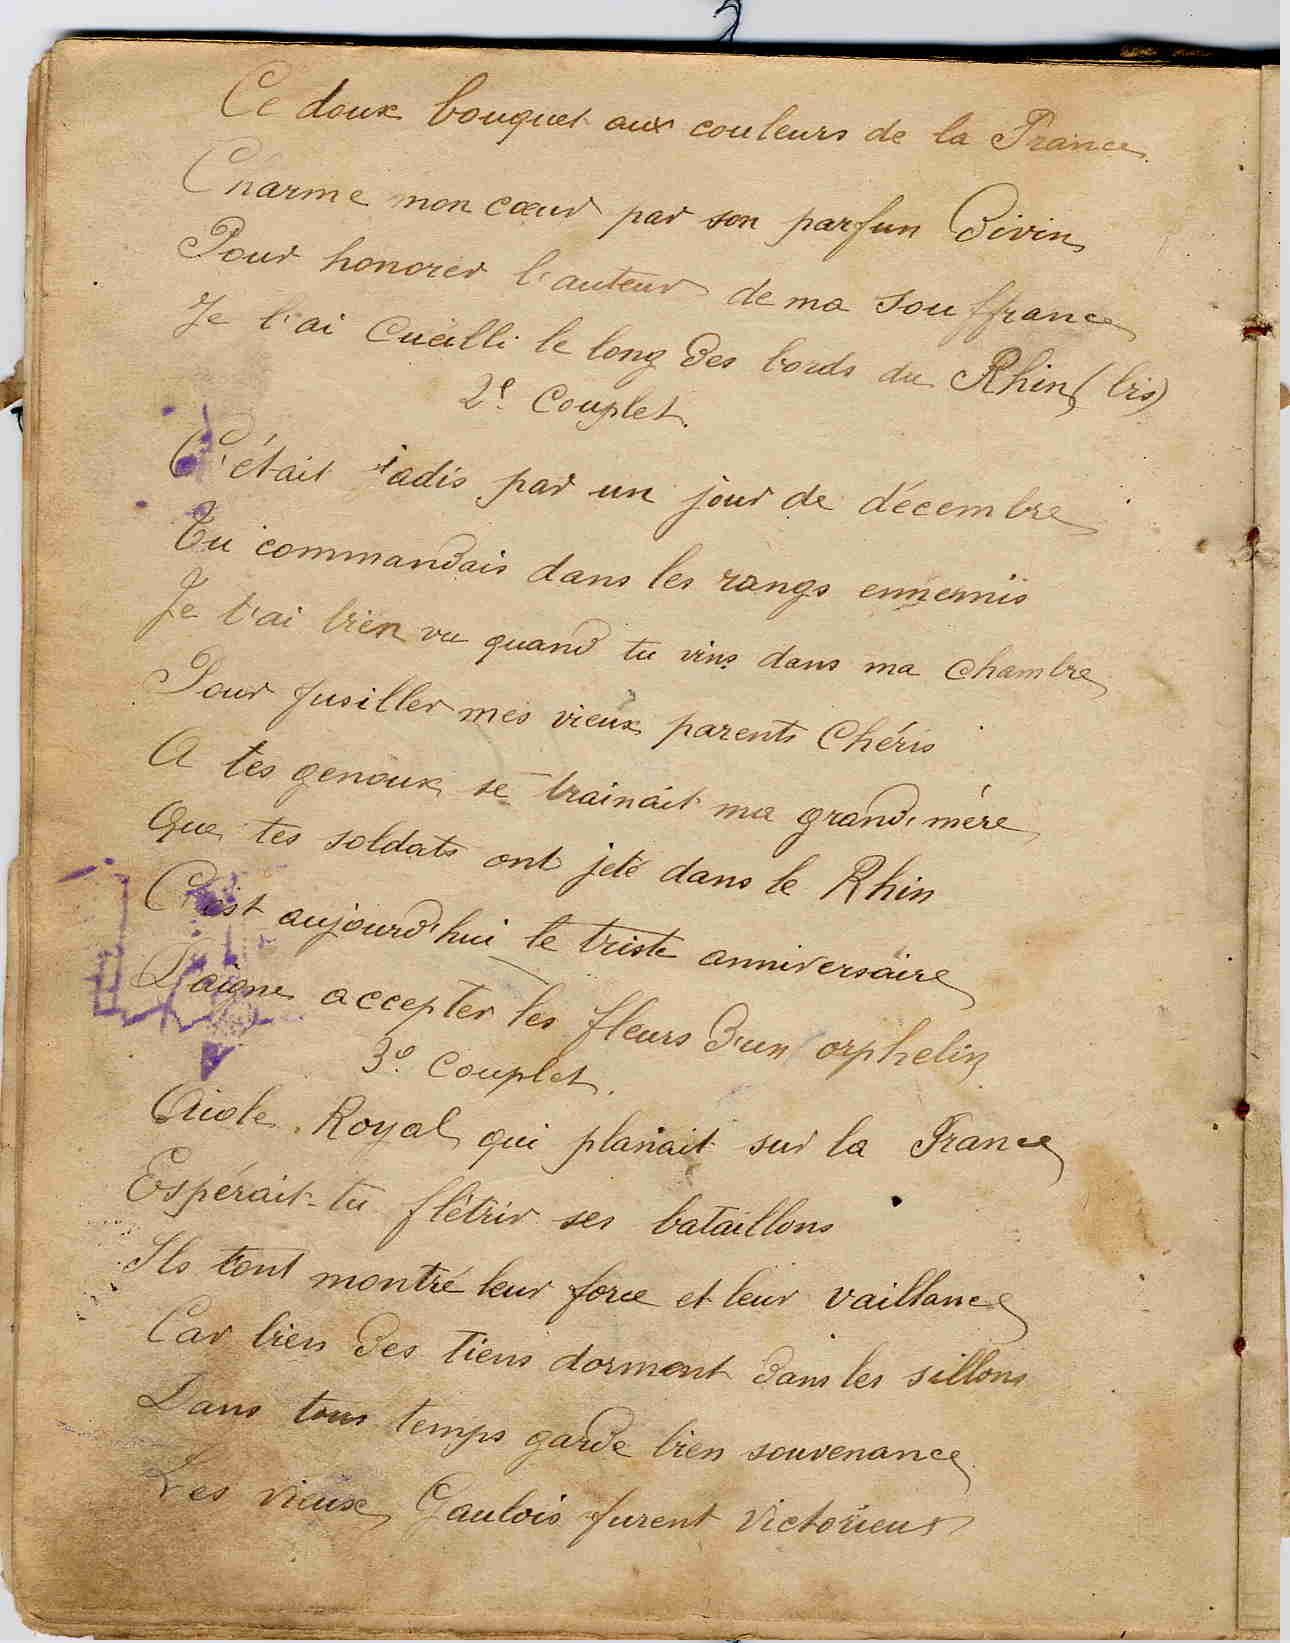 Ce doux bouquet aux couleurs de la France
Charme mon cœur par son parfun Divin
Pour honorer l'auteur de ma souffrance
Je l'ai Cueilli le long des bords du Rhin (bis)
2e. Couplet.
C'était jadis par un jour de décembre
Tu commandais dans les rangs ennemis
Je t'ai bien vu quand tu vins dans ma chambre
Pour fusiller mes vieux parents Chéris
A tes genoux se trainait ma grand'mère
Que tes soldats ont jeté dans le Rhin
C'est aujourd'hui le triste anniversaire
Daigne accepter les fleurs d'un orphelin
3e. Couplet.
Aigle Royal qui planait sur la France
Espérait-tu flétrir ses bataillons
Ils tont montré leur force et leur vaillance
Car bien des tiens dorment dans les sillons
Dans tous temps garde bien souvenance
Les vieux Gaulois furent victorieux